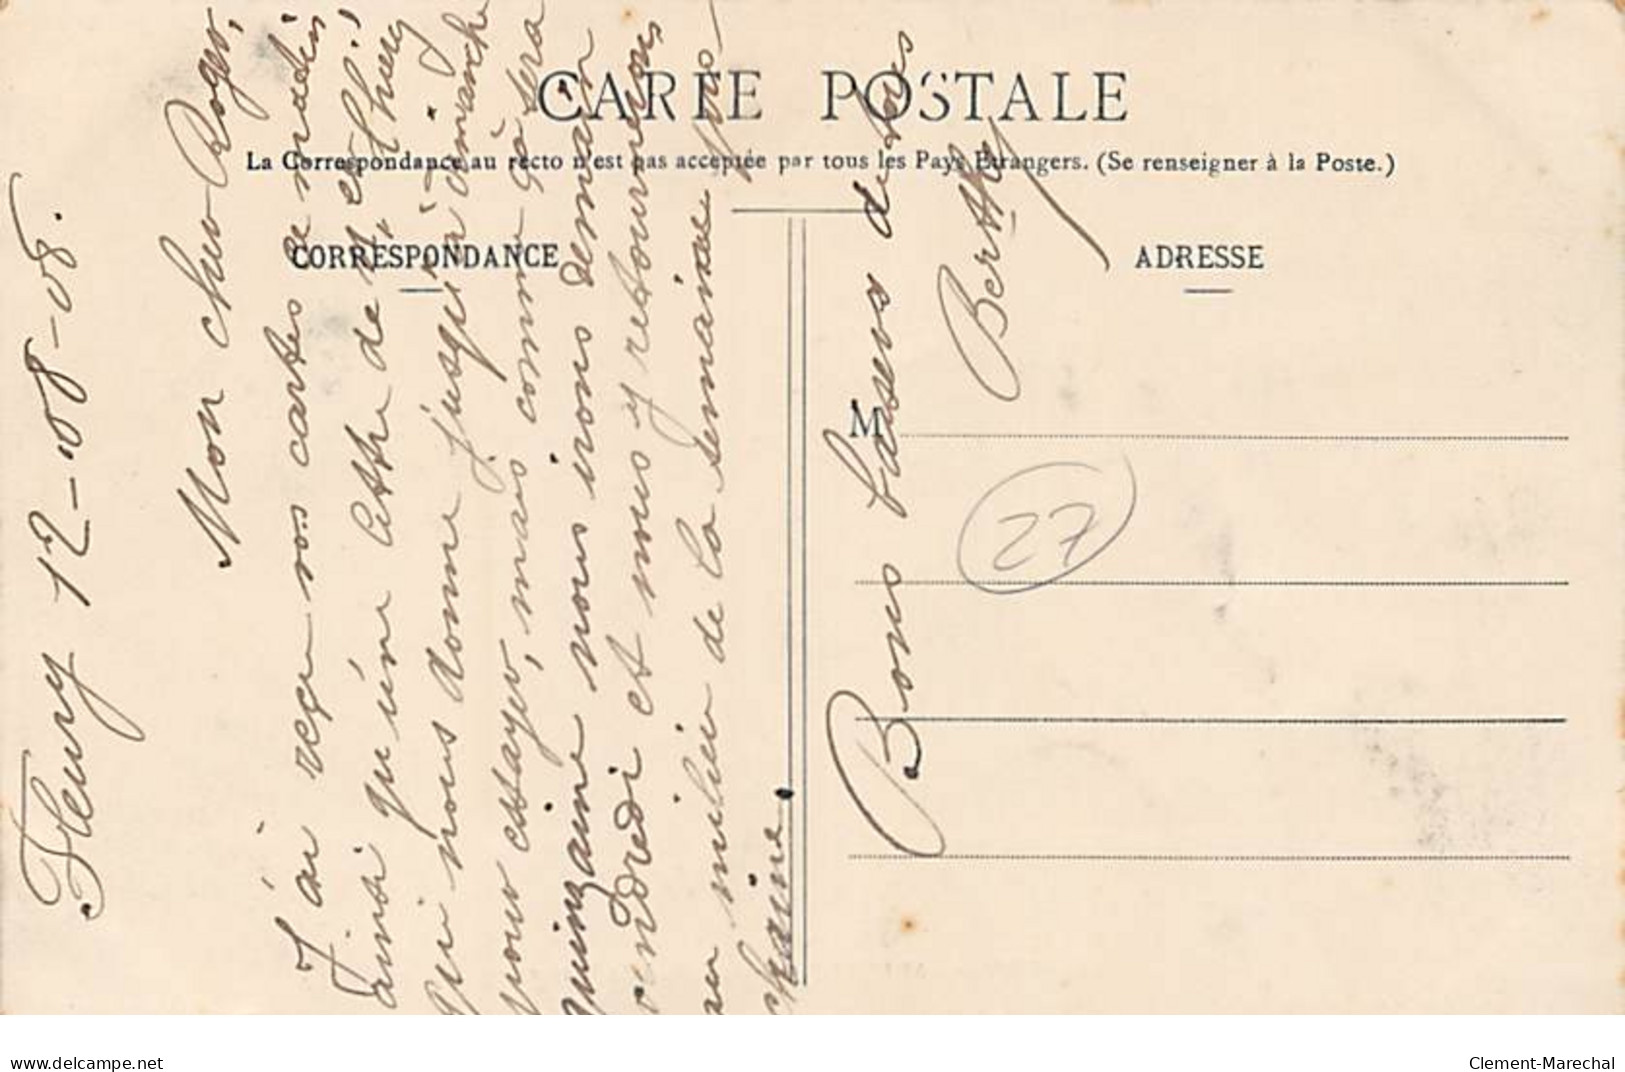 CARTE POSTALE
La Correspondance au recto n'est pas acceptée par tous les Pays Etrangers. (Se renseigner à la Poste.)
CORRESPONDANCE
ADRESSE
M
Fleury 12-08-08.
Mon cher Roger,
J'ai reçu vos cartes ce matin
ainsi qu'une lettre de M. et Thierry
qui nous donne jusqu'à dimanche
pour essayer, mais comme ça sera
quinzaine nous irons demain
vendredi et nous y retournerons
au milieu de la semaine pro-
chaine.
Bons baisers de
Berthe
27
delcampe.net
Clement-Marechal